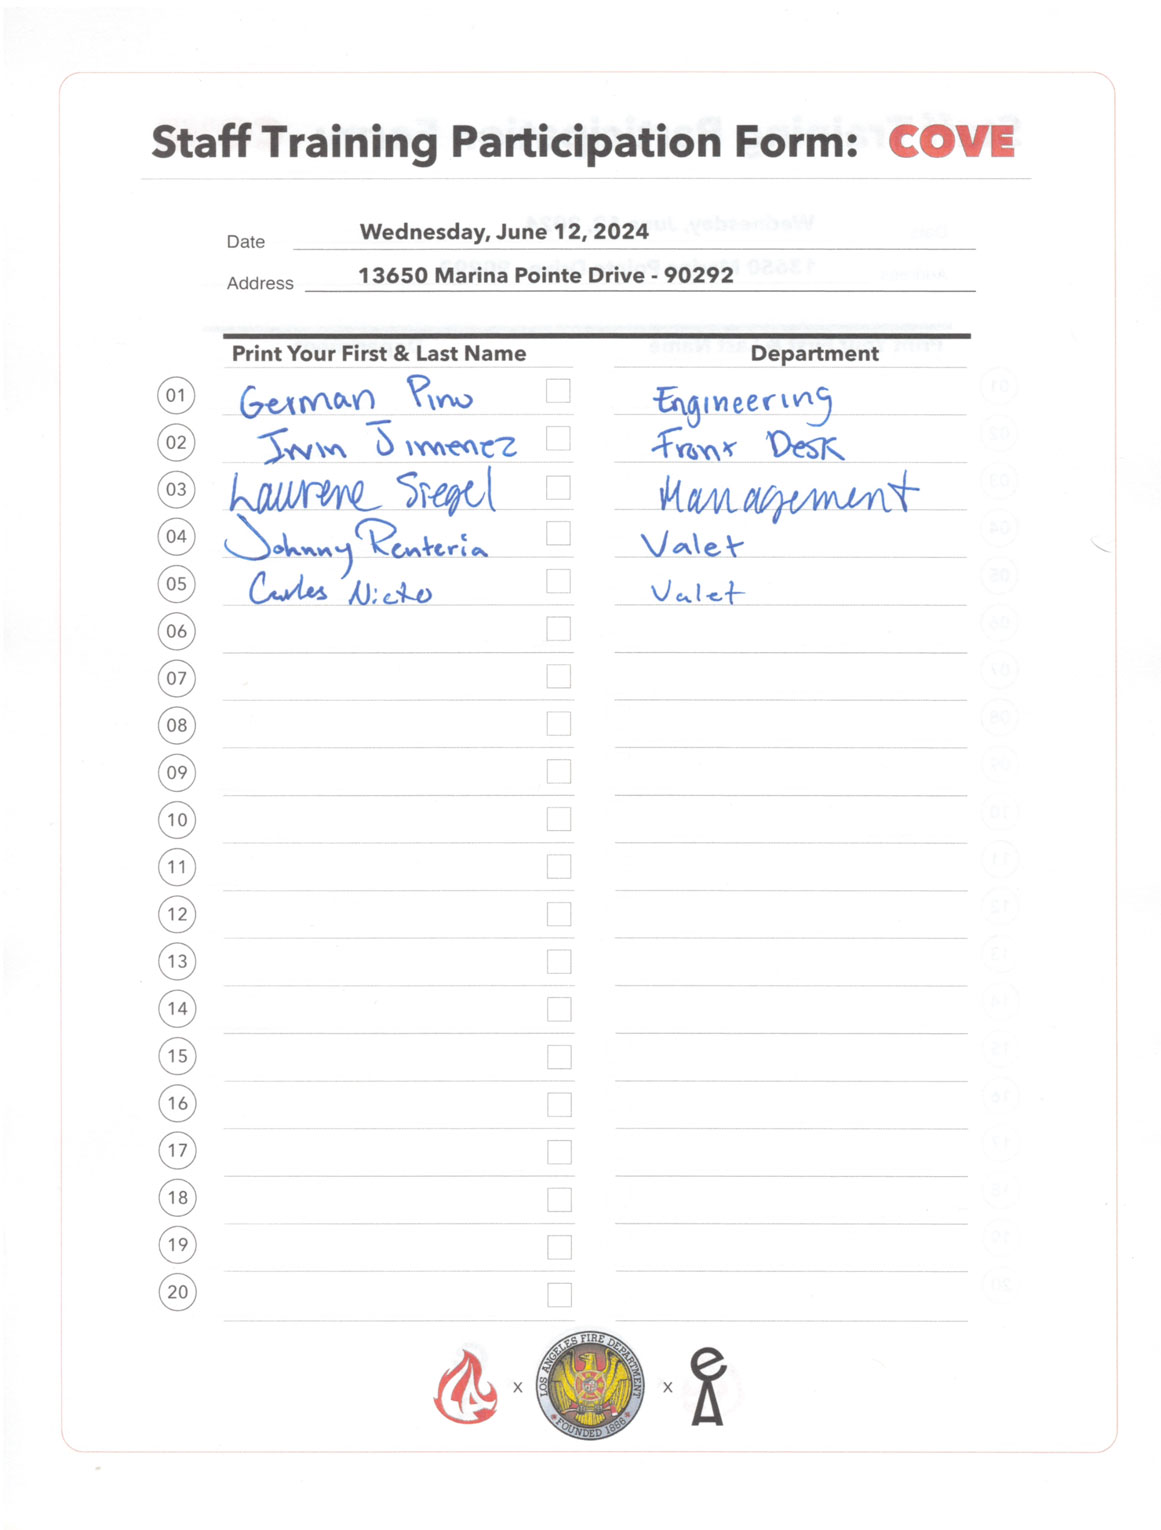 Staff Training Participation Form: COVE
Date Wednesday, June 12, 2024
Address 13650 Marina Pointe Drive - 90292
Print Your First & Last Name Department
01 German Pino Engineering
02 Irvin Jimenez Front Desk
03 Laurene Siegel Management
04 Johnny Renteria Valet
05 Carlos Nieto Valet
06
07
08
09
10
11
12
13
14
15
16
17
18
19
20
x LOS ANGELES FIRE DEPARTMENT x
FOUNDED 1886